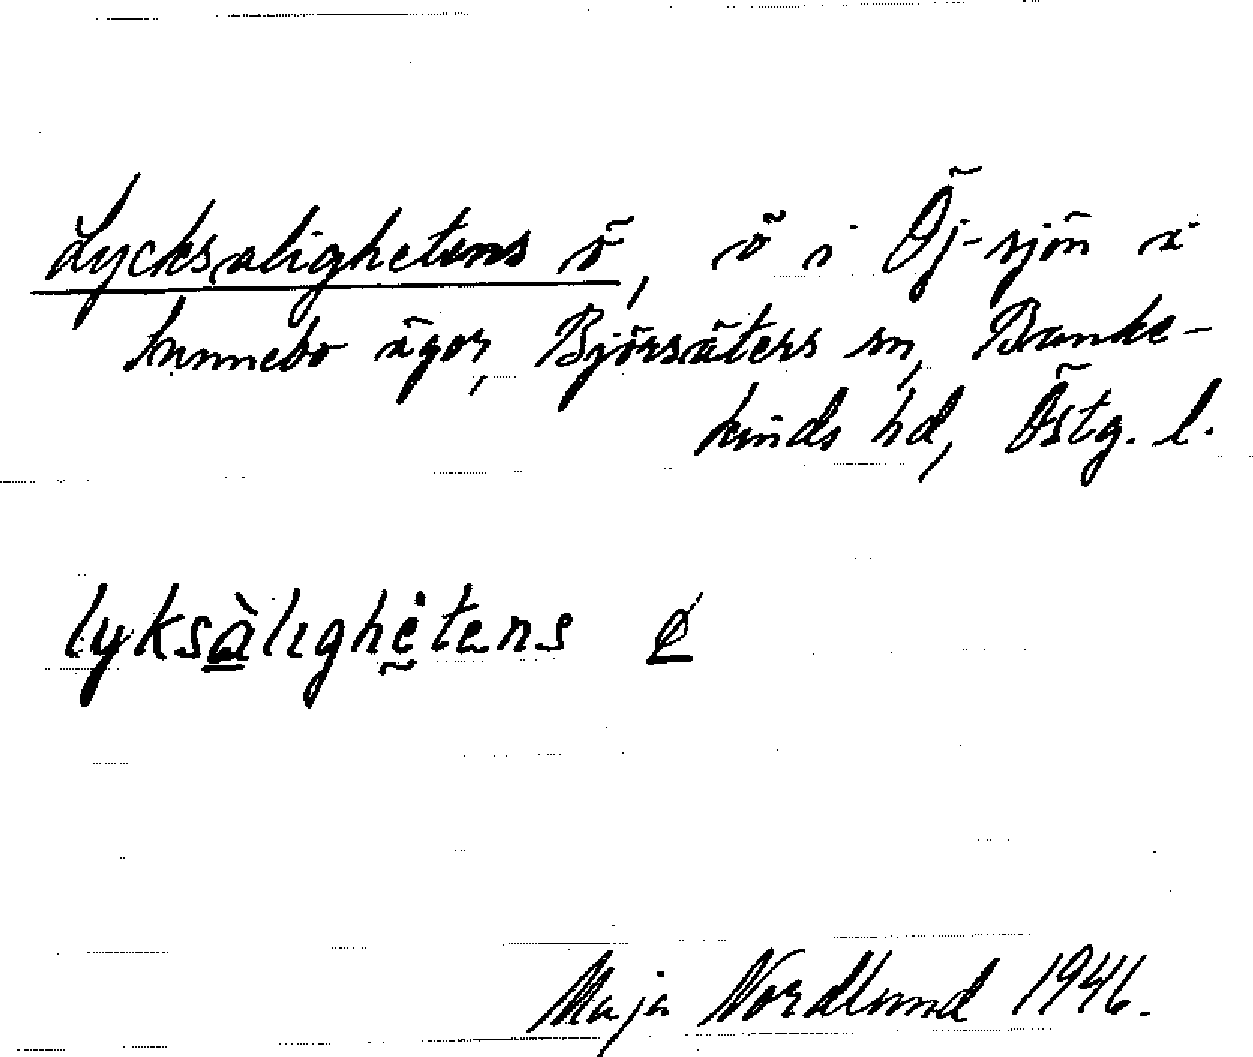 Lycksalighetens ö, ö i Öj-sjön å
Kunnebo ägor, Björsäters sn, Banke-
kinds hd, Östg. l.
lyksàlighètens
Maja Nordlund 1946.